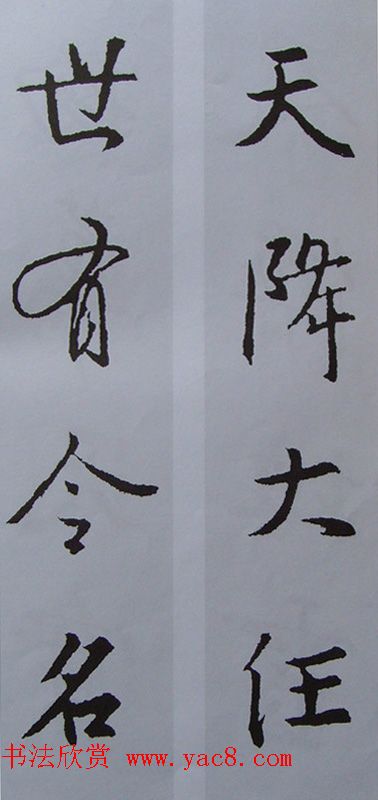 天降大任
世有令名
书法欣赏 www.yac8.com